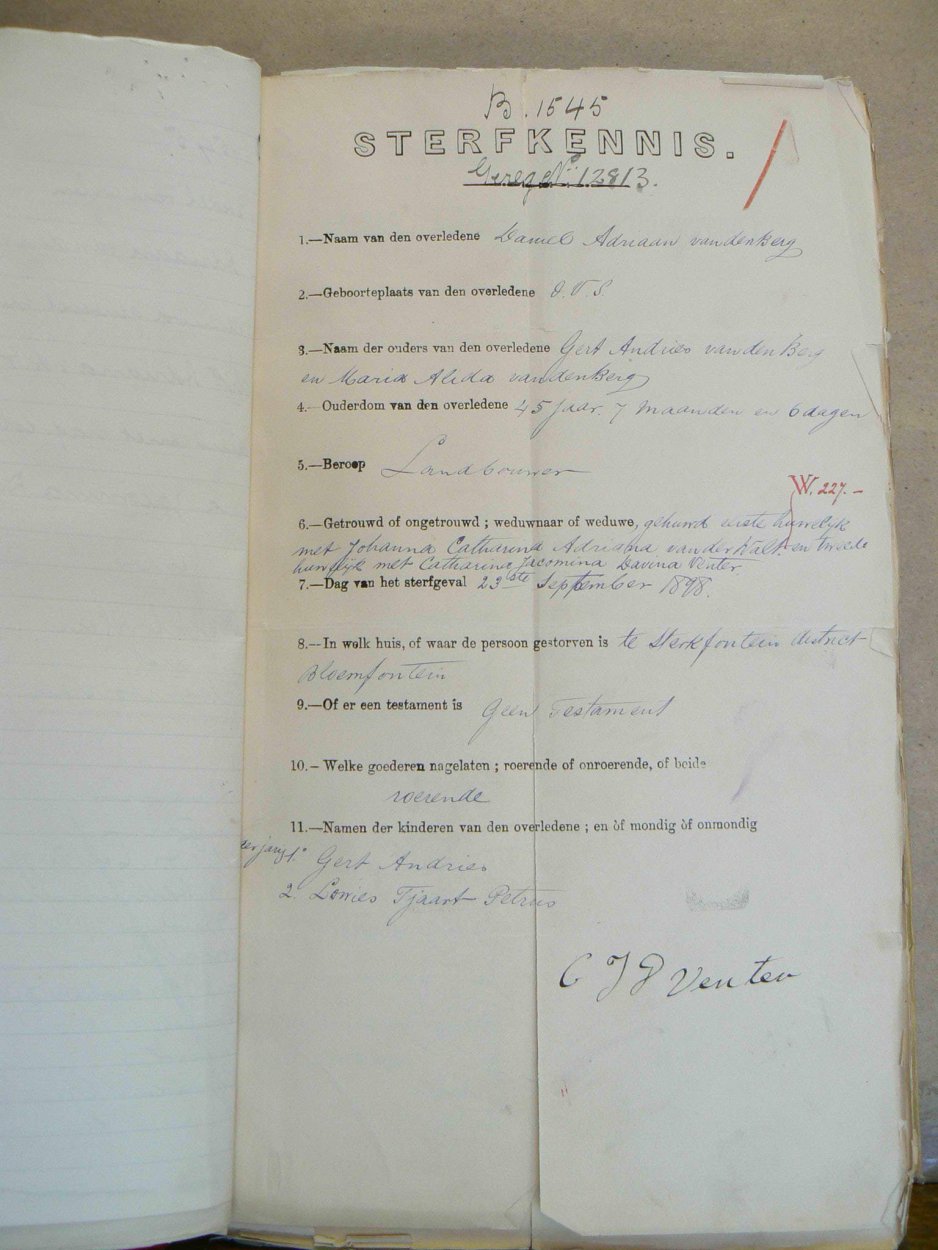 B. 1545
STERFKENNIS.
Gereg. No. 12813.
1.—Naam van den overledene Daniel Adriaan van den Berg
2.—Geboorteplaats van den overledene O.V.S.
3.—Naam der ouders van den overledene Gert Andries van den Berg
en Maria Alida van den Berg
4.—Ouderdom van den overledene 45 Jaar, 7 Maanden en 6 dagen
5.—Beroep Landbouwer
W. 227.—
6.—Getrouwd of ongetrouwd ; weduwnaar of weduwe, gehuwd eerste huwelijk
met Johanna Catharina Adriana van der Walt en tweede
huwelijk met Catharina Jacomina Davina Venter
7.—Dag van het sterfgeval 23ste September 1898.
8.—In welk huis, of waar de persoon gestorven is te Sterkfontein district
Bloemfontein
9.—Of er een testament is Geen Testament
10.—Welke goederen nagelaten ; roerende of onroerende, of beide
roerende
11.—Namen der kinderen van den overledene ; en òf mondig òf onmondig
1. Gert Andries
2. Lowies Tjaart Petrus
C J D Venter